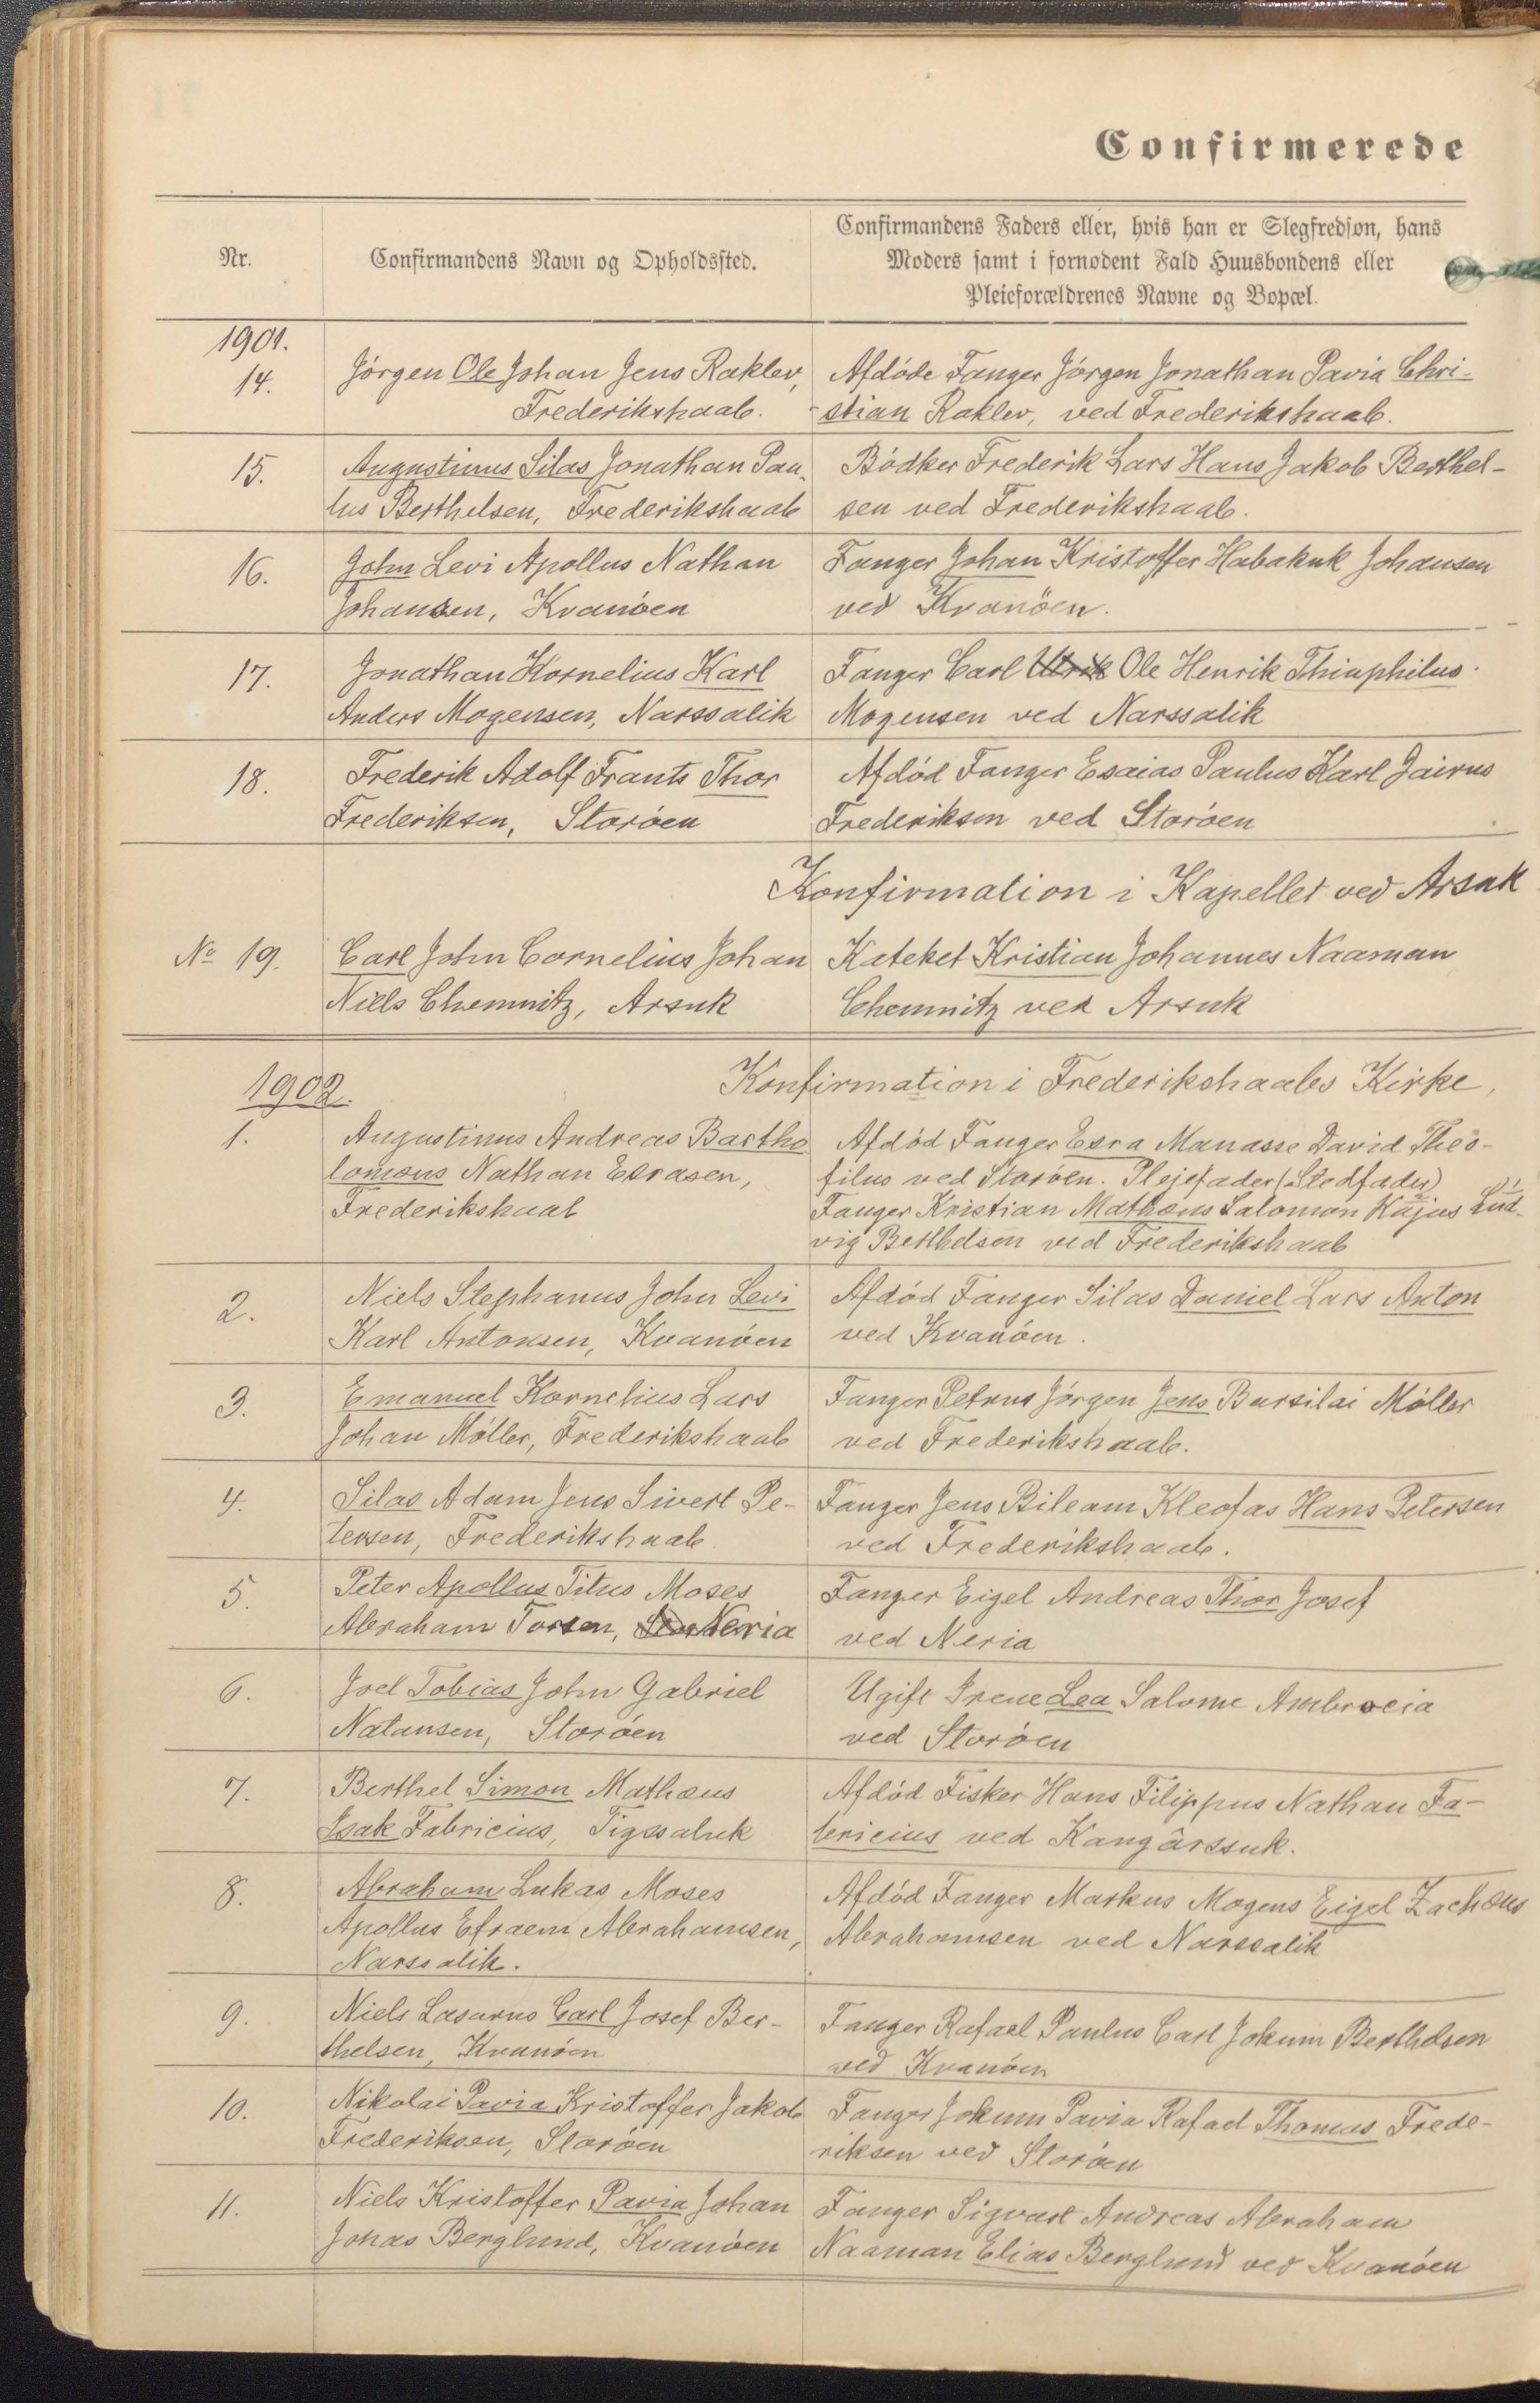 Confirmerede
Nr.
Confirmandens Navn og Opholdssted.
Confirmandens Faders eller, hvis han er Slegfredsøn, hans
Moders samt i fornødent Fald Huusbondens eller
Pleieforældrenes Navne og Bopæl.
1901.
14.
Jörgen Ole Johan Jens Raklev,
Frederikshaab.
Afdöde Fanger Jörgen Jonathan Pavia Chri-
-stian Raklev, ved Frederikshaab.
15.
Augustinus Silas Jonathan Pau-
lus Berthelsen, Frederikshaab
Bödker Frederik Lars Hans Jakob Berthel-
sen ved Frederikshaab.
16.
John Levi Apollus Nathan
Johansen, Kvanöen
Fanger Johan Kristoffer Habakuk Johansen
ved Kvanöen.
17.
Jonathan Kornelius Karl
Anders Mogensen, Narssalik
Fanger Carl Ole Henrik Thiuphilus
Mogensen ved Narssalik
18.
Frederik Adolf Frants Thor
Frederiksen, Storöen
Afdöd Fanger Esaias Paulus Karl Jairus
Frederiksen ved Storöen
Konfirmation i Kapellet ved Arsuk
No 19.
Carl John Cornelius Johan
Niels Chemnitz, Arsuk
Kateket Kristian Johannes Naaman
Chemnitz ved Arsuk
1902.
Konfirmation i Frederikshaabs Kirke,
1.
Augustinus Andreas Bartho
lomæus Nathan Esrasen,
Frederikshaab
Afdöd Fanger Esra Manasse David Theo-
filus ved Storöen. Plejefader (Stedfader)
Fanger Kristian Mathæus Salomon Kajus Lud-
vig Berthelsen ved Frederikshaab
2.
Niels Stephanus John Levi
Karl Antonsen, Kvanöen
Afdöd Fanger Silas Daniel Lars Anton
ved Kvanöen.
3.
Emanuel Kornelius Lars
Johan Möller, Frederikshaab
Fanger Petrus Jörgen Jens Barsilai Möller
ved Frederikshaab.
4.
Silas Adam Jens Sivert Pe-
tersen, Frederikshaab.
Fanger Jens Bileam Kleofas Hans Petersen
ved Frederikshaab.
5.
Peter Apollus Titus Moses
Abraham Torsen, Neria
Fanger Eigel Andreas Thor Josef
ved Neria
6.
Joel Tobias John Gabriel
Natansen, Storöen
Ugift Irene Lea Salome Ambrocia
ved Storöen
7.
Berthel Simon Mathæus
Isak Fabricius, Tigssaluk
Afdöd Fisker Hans Filippus Nathan Fa-
bricius ved Kangârssuk.
8.
Abraham Lukas Moses
Apollus Efraem Abrahamsen,
Narssalik.
Afdöd Fanger Markus Mogens Eigel Zachæus
Abrahamsen ved Narssalik
9.
Niels Lasarus Carl Josef Ber-
thelsen, Kvanöen
Fanger Rafael Paulus Carl Jokum Berthelsen
ved Kvanöen
10.
Nikolai Pavia Kristoffer Jakob
Frederiksen, Storöen
Fanger Jokum Pavia Rafael Thomas Frede-
riksen ved Storöen
11.
Niels Kristoffer Pavia Johan
Jonas Berglund, Kvanöen
Fanger Sigvart Andreas Abraham
Naaman Elias Berglund ved Kvanöen